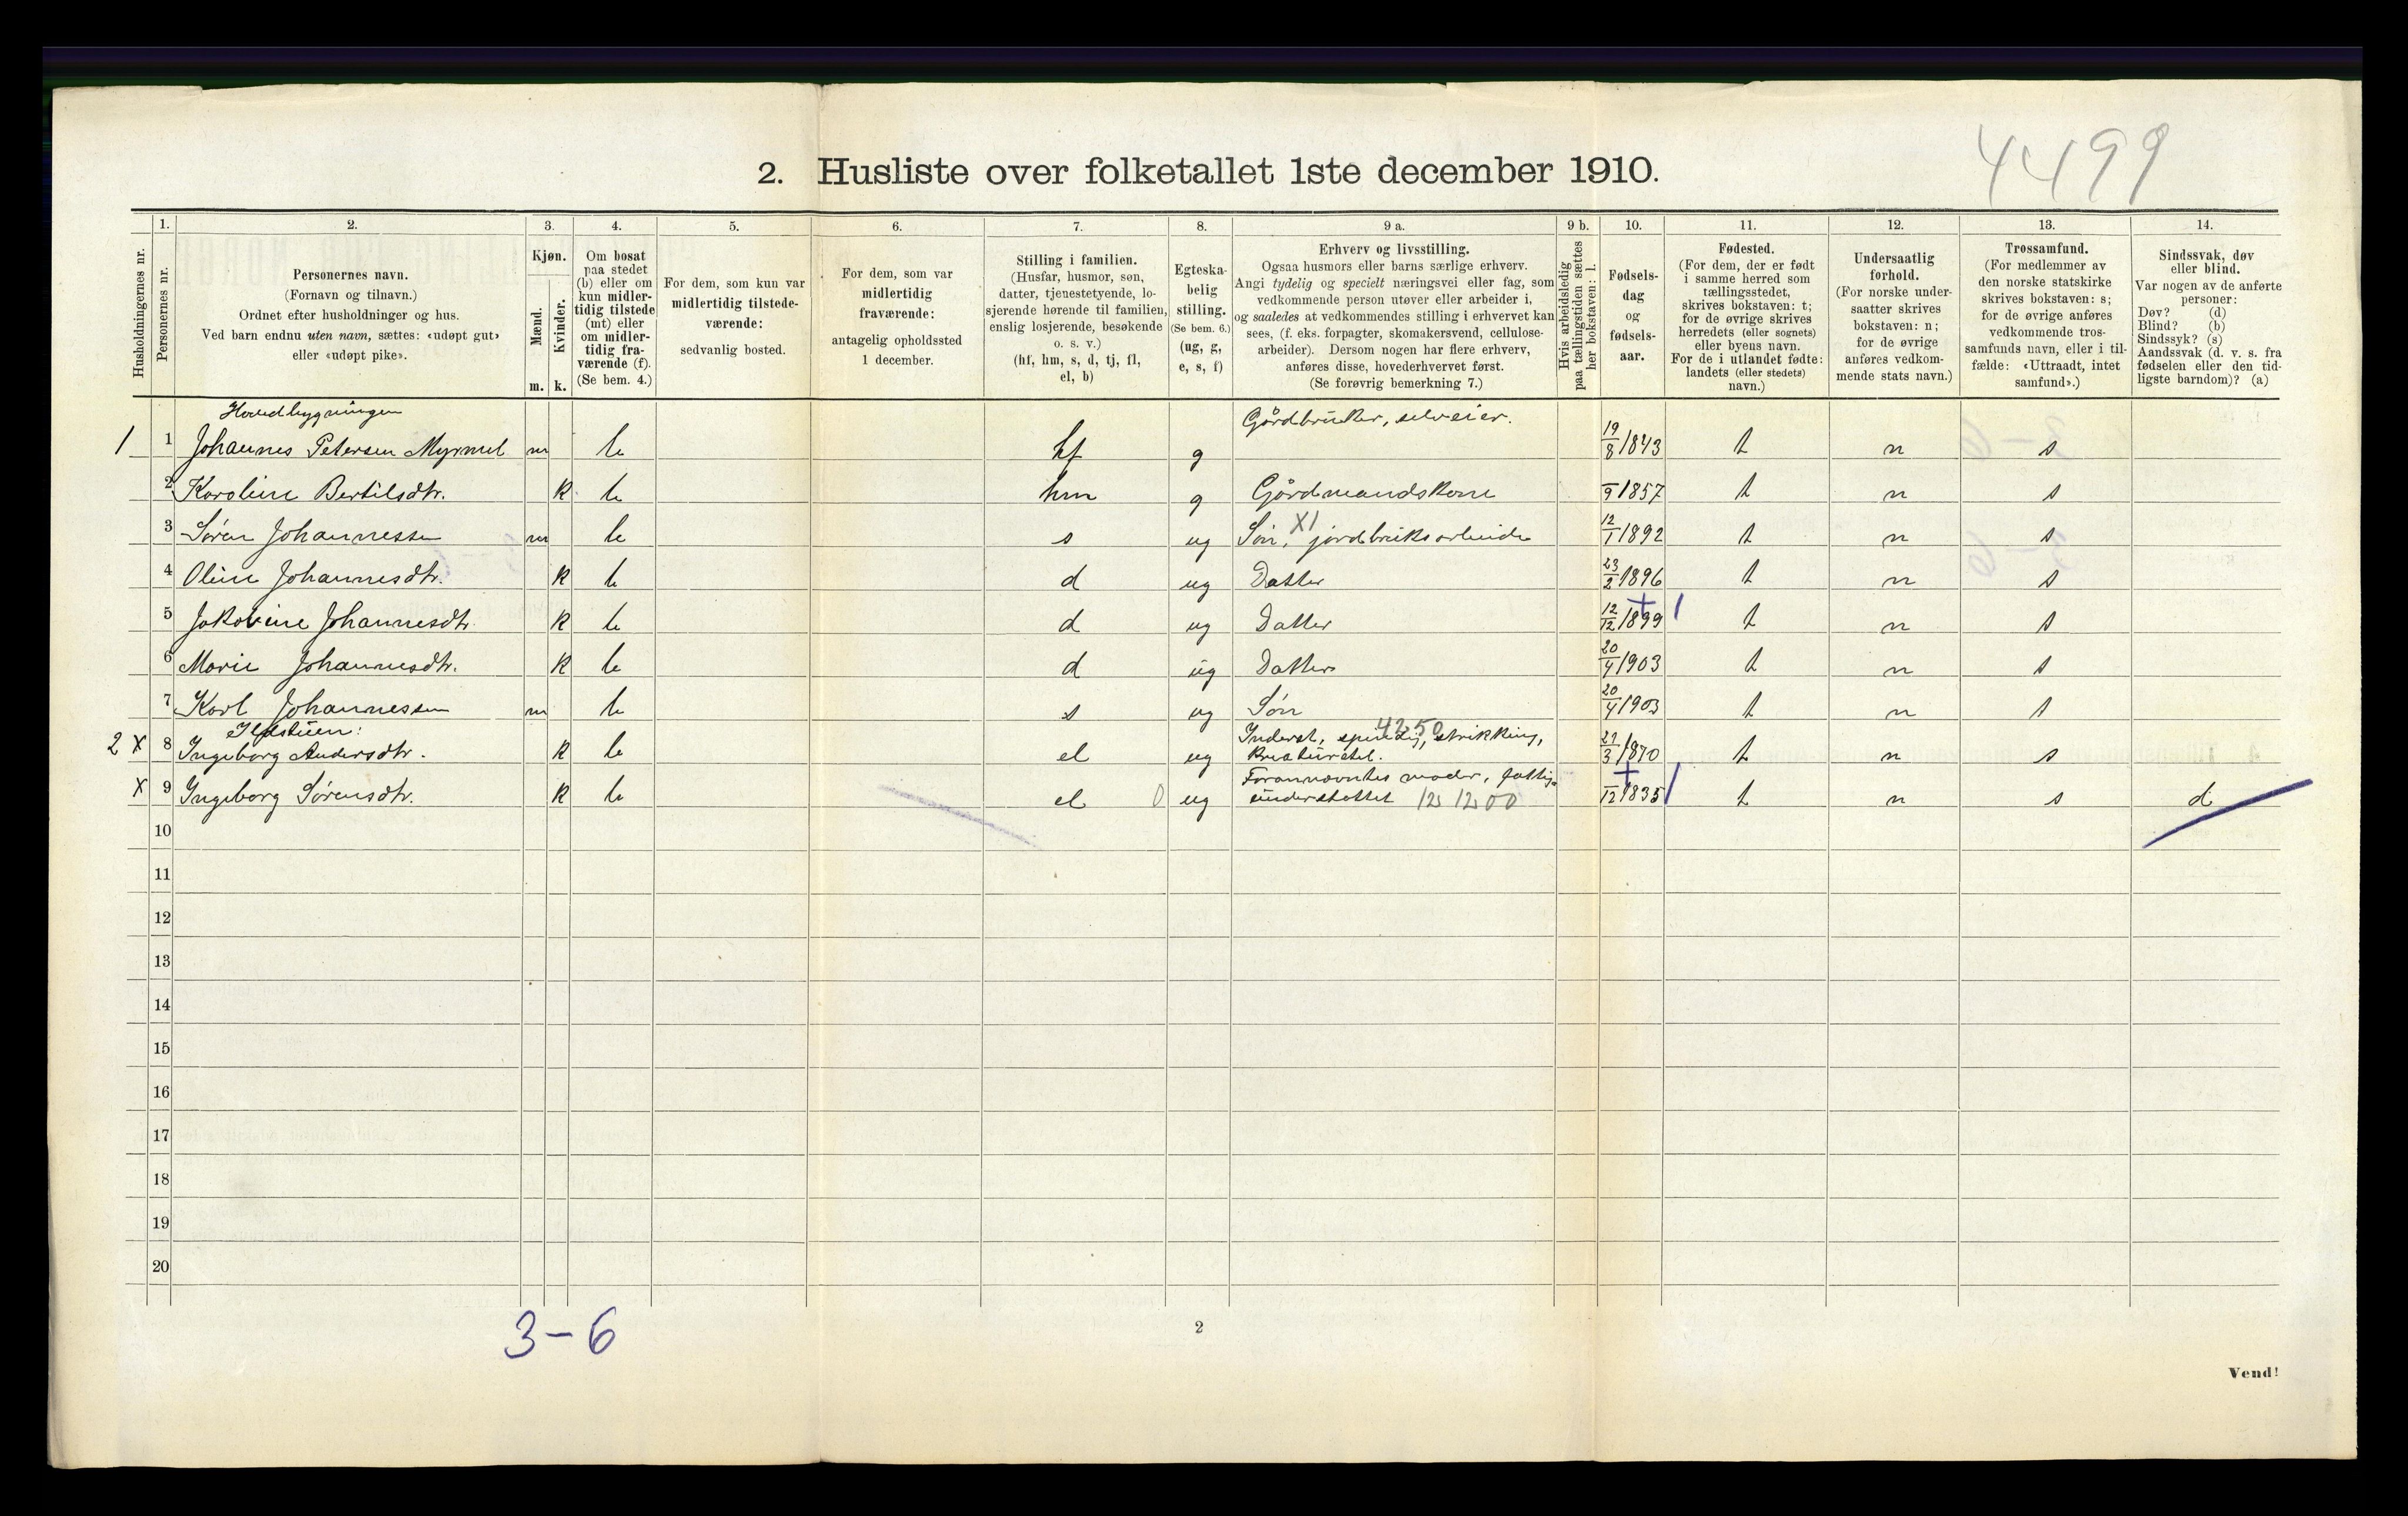 4499
2. Husliste over folketallet 1ste december 1910.
Husholdningernes nr.
1.
Personernes nr.
2.
Personernes navn.
(Fornavn og tilnavn.)
Ordnet efter husholdninger og hus.
Ved barn endnu uten navn, sættes: «udøpt gut»
eller «udøpt pike».
3.
Kjøn.
Mænd.
Kvinder.
m. k.
4.
Om bosat
paa stedet
(b) eller om
kun midler-
tidig tilstede
(mt) eller
om midler-
tidig fra-
værende (f).
(Se bem. 4.)
5.
For dem, som kun var
midlertidig tilstede-
værende:
sedvanlig bosted.
6.
For dem, som var
midlertidig
fraværende:
antagelig opholdssted
1 december.
7.
Stilling i familien.
(Husfar, husmor, søn,
datter, tjenestetyende, lo-
sjerende hørende til familien,
enslig losjerende, besøkende
o. s. v.)
(hf, hm, s, d, tj, fl,
el, b)
8.
Egteska-
belig
stilling.
(Se bem. 6.)
(ug, g,
e, s, f)
9 a.
Erhverv og livsstilling.
Ogsaa husmors eller barns særlige erhverv.
Angi tydelig og specielt næringsvei eller fag, som
vedkommende person utøver eller arbeider i,
og saaledes at vedkommendes stilling i erhvervet kan
sees, (f. eks. forpagter, skomakersvend, cellulose-
arbeider). Dersom nogen har flere erhverv,
anføres disse, hovederhvervet først.
(Se forøvrig bemerkning 7.)
9 b.
Hvis arbeidsledig
paa tællingstiden sættes
her bokstaven: l.
10.
Fødsels-
dag
og
fødsels-
aar.
11.
Fødested.
(For dem, der er født
i samme herred som
tællingsstedet,
skrives bokstaven: t;
for de øvrige skrives
herredets (eller sognets)
eller byens navn.
For de i utlandet fødte:
landets (eller stedets)
navn.)
12.
Undersaatlig
forhold.
(For norske under-
saatter skrives
bokstaven: n;
for de øvrige
anføres vedkom-
mende stats navn.)
13.
Trossamfund.
(For medlemmer av
den norske statskirke
skrives bokstaven: s;
for de øvrige anføres
vedkommende tros-
samfunds navn, eller i til-
fælde: «Uttraadt, intet
samfund».)
14.
Sindssvak, døv
eller blind.
Var nogen av de anførte
personer:
Døv? (d)
Blind? (b)
Sindssyk? (s)
Aandssvak (d. v. s. fra
fødselen eller den tid-
ligste barndom)? (a)
Hovedbygningen
1 1 Johannes Petersen Myrmel m b hf g Gårdbruker, selveier. 19/8 1843 t n s
2 Karoline Bertilsdtr. k b hm g Gårdmandskone /9 1857 t n s
3 Søren Johannessen m b s ug Søn, X1 jordbruksarbeide 12/1 1892 t n s
4 Oline Johannesdtr. k b d ug Datter 23/2 1896 t n s
5 Jakobine Johannesdtr. k b d ug Datter 12/12 1899 t n s
6 Marie Johannesdtr. k b d ug Datter 20/4 1903 t n s
7 Karl Johannessen m b s ug Søn 20/4 1903 t n s
Ildstuen:
2 X 8 Ingeborg Andersdtr. k b el ug Inderst, spinding, strikking, 4250
kreaturstel. 21/3 1870 t n s
X 9 Ingeborg Sørensdtr. k b el 0 ug Forannævntes moder, fattig-
understøttet 12 1200 /12 1835 t n s d
10
11
12
13
14
15
16
17
18
19
20
3-6
2
Vend!